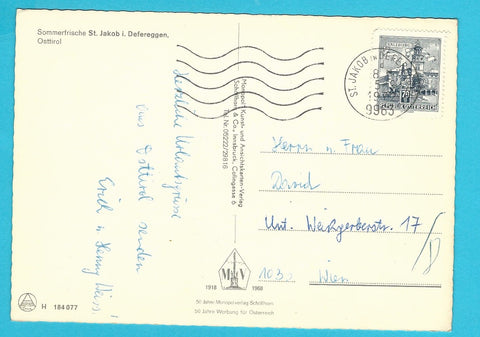 Sommerfrische St. Jakob i. Defereggen,
Osttirol
Herzliche Urlaubsgrüsse
aus Osttirol senden
Erich u. Henny Weiss!
Monopol Kunst- und Ansichtskarten-Verlag
Schöllhorn & Co., Innsbruck, Colingasse 6
Tel. Nr. 05222/29816
ST. JAKOB IN DEFER
8
5
19
9963
70
REPUBLIK ÖSTERREICH
Herrn u. Frau
David
Unt. Weißgerberstr. 17/
1030 Wien
1918 1968
50 Jahre Monopolverlag Schöllhorn
50 Jahre Werbung für Österreich
H 184077